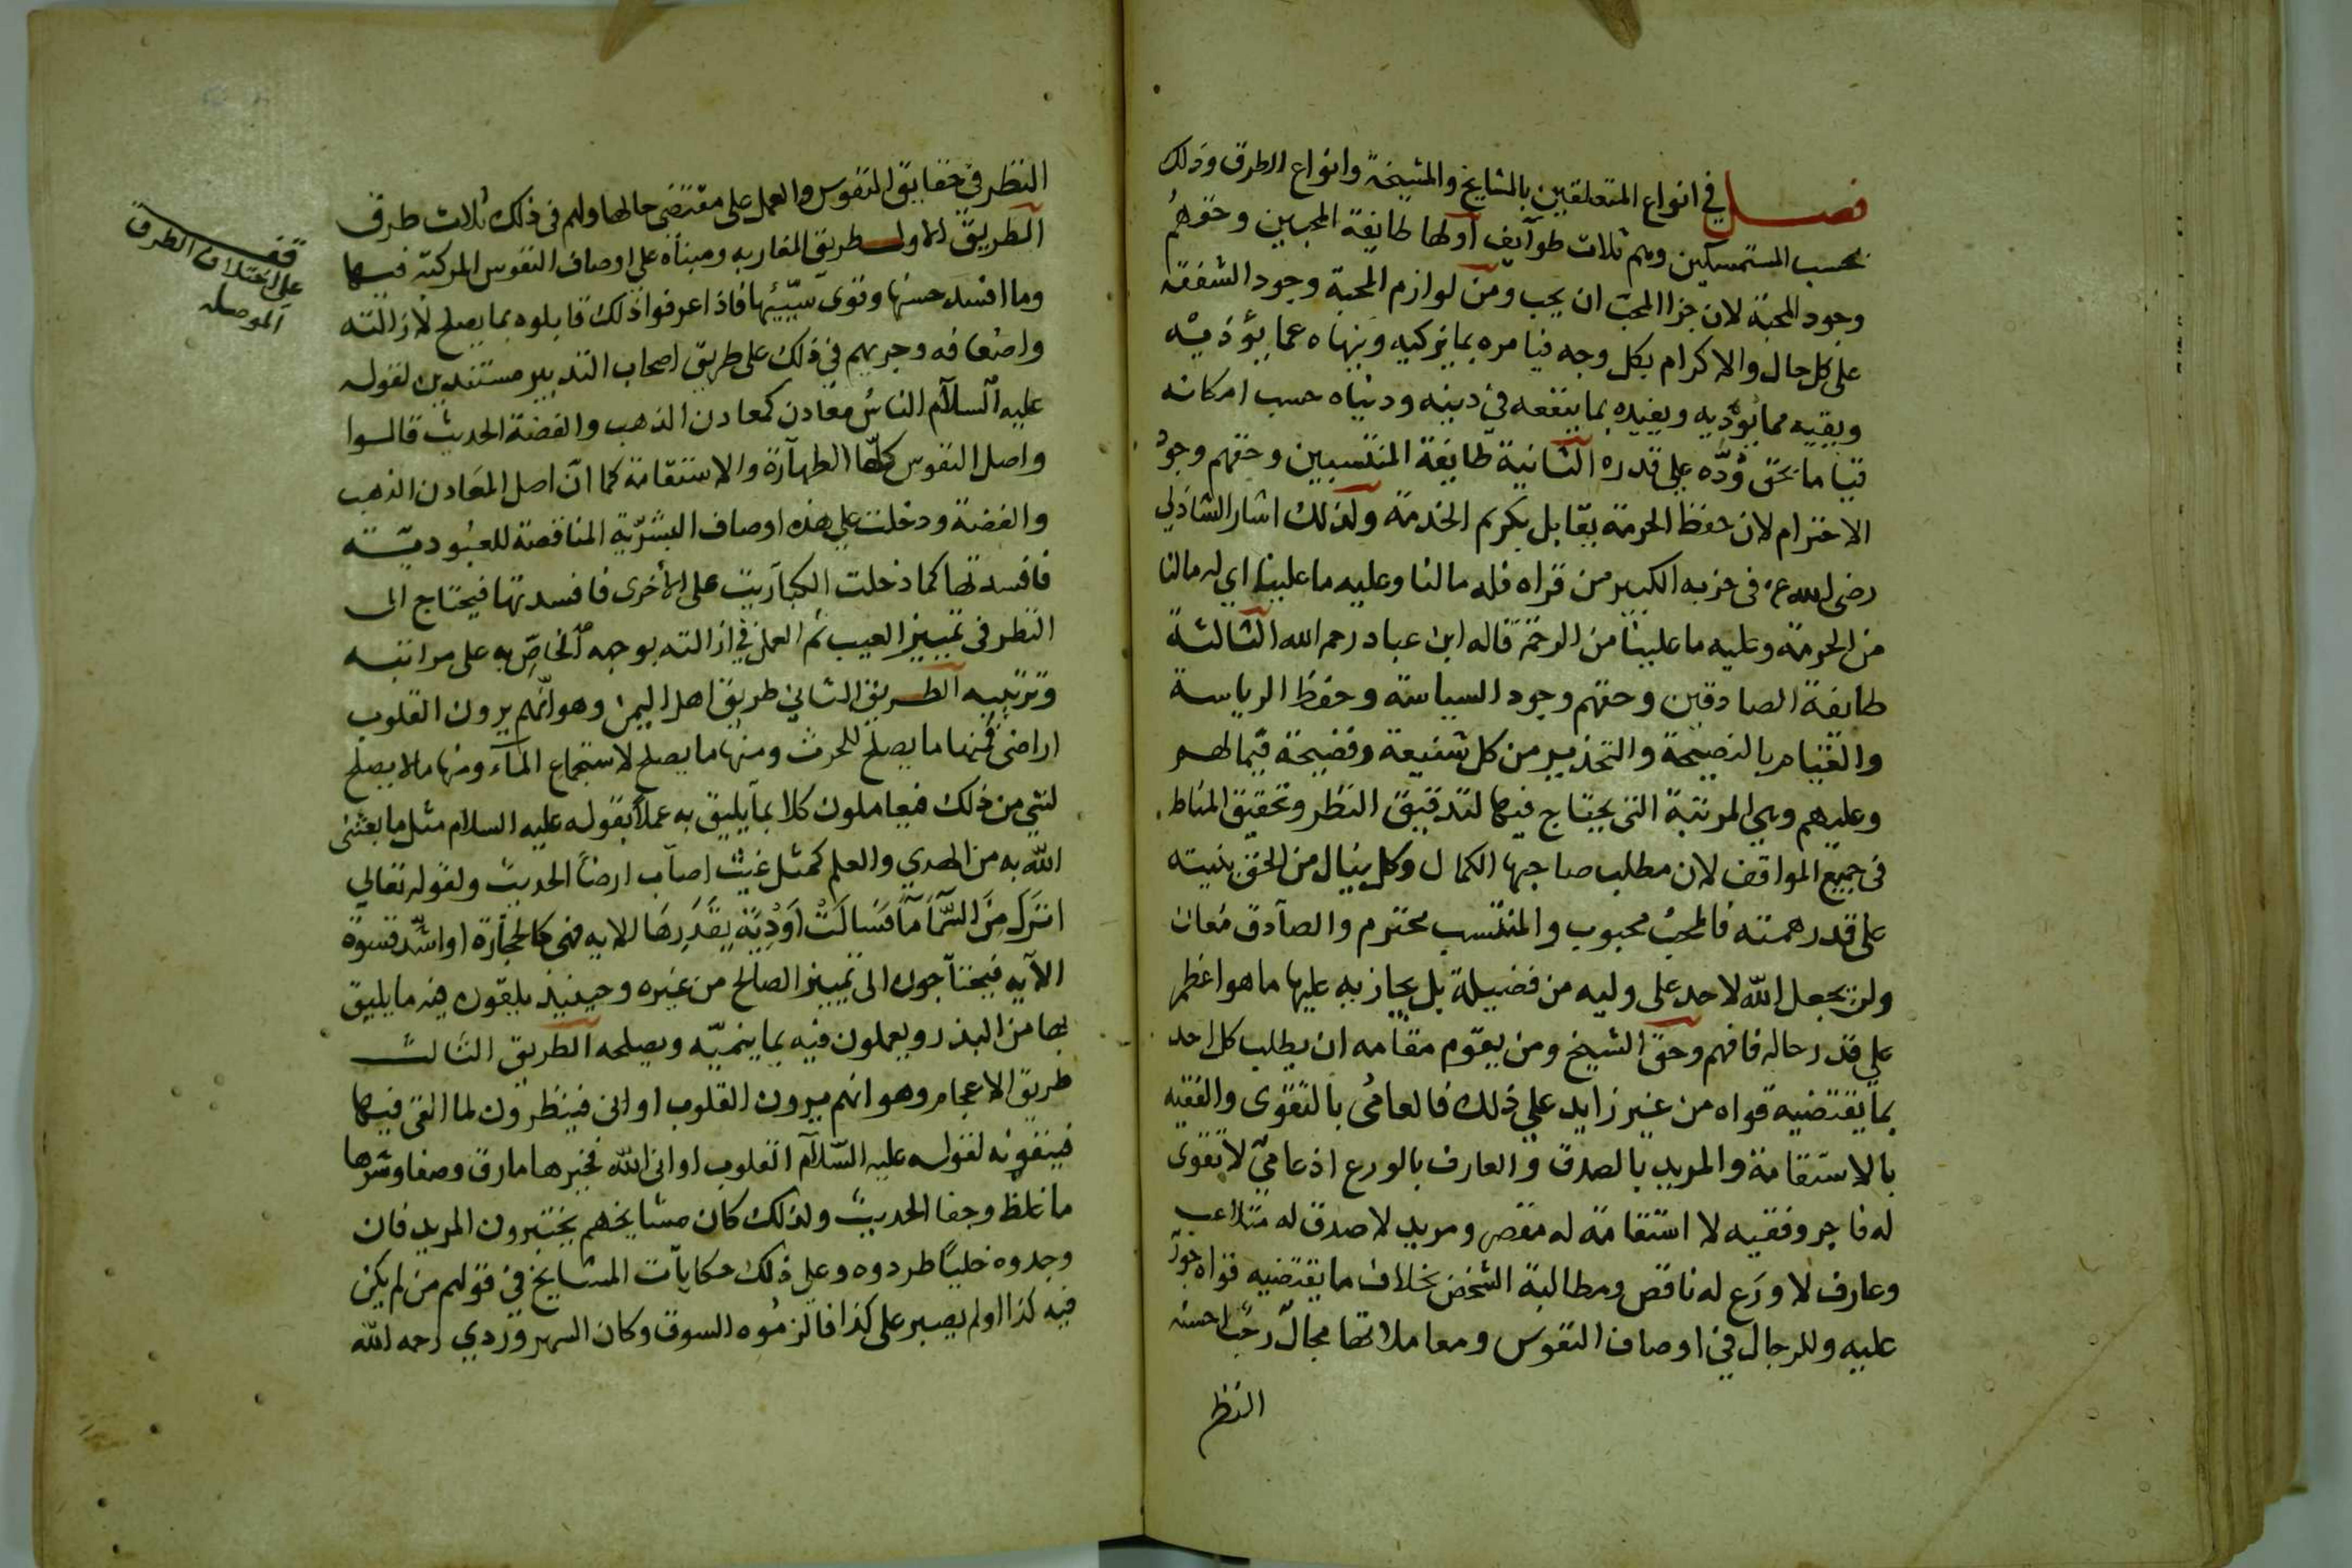 فصل في انواع المتعلقين بالمشايخ والمشيخة وانواع الطرق وذلك
بحسب المستمسكين وهم ثلاث طوآيف أولها طايفة المحبين وحقهم
وجود المحبة لان جزا المحب ان يحب ومن لوازم المحبة وجود الشفقة
على كل حال والاكرام بكل وجه فيامره بما يزكيه وينهاه عما يؤذيه
ويقيه مما يؤديه ويفيده بما ينفعه في دينه ودنياه حسب امكانه
قياما بحق ودّه على قدره الثانية طايفة المنتسبين وحقهم وجود
الاحترام لان حفظ الحرمة يقابل بكريم الخدمة ولذلك اشار الشاذلي
رضى الله عنه فى حزبه الكبير من قراه فله مالنا وعليه ما علينا اي له مالنا
من الحرمة وعليه ما علينا من الرحمة قاله ابن عباد رحمه الله الثالثة
طايفة الصادقين وحقهم وجود السياسة وحفظ الرياسة
والقيام بالنصيحة والتحذير من كل شنيعة وفضيحة فيما لهم
وعليهم وهي المرتبة التى يحتاج فيها لتدقيق النظر وتحقيق المناط
فى جميع المواقف لان مطلب صاحبها الكمال وكل ينال من الحق بنيته
على قدر همته فالمحب محبوب والمنتسب محترم والصآدق معان
ولن يجعل الله لاحد على وليه من فضيلة بل يجازيه عليها ما هو اعظم
على قدر حاله فافهم وحق الشيخ ومن يقوم مقامه ان يطلب كل احد
بما يقتضيه قواه من غير زايد على ذلك فالعامي بالتقوى والفقيه
بالاستقامة والمريد بالصدق والعارف بالورع اذ عامي لا تقوى
له فاجر وفقيه لا استقامة له مقصر ومريد لا صدق له متلاعب
وعارف لا ورَع له ناقص ومطالبة الشخص بخلاف ما يقتضيه قواه جور
عليه وللرجال في اوصاف النفوس ومعاملاتها مجال رحب احسنه
النظر
النظر فى حقايق النفوس والعمل على مقتضى حالها ولهم فى ذلك ثلاث طرق
الطريق الاول طريق المغاربه ومبناه على اوصاف النفوس المركبة فيها
وما افسد حسنها وقوى سيّئها فاذا عرفوا ذلك قابلوه بما يصلح لازالته
واضعافه وجريهم في ذلك على طريق اصحاب التدبير مستندين لقوله
عليه السلام الناس معادن كمعادن الذهب والفضة الحديث قالوا
واصل النفوس كلّها الطهآرة والاستقامة كما انّ اصل المعادن الذهب
والفضة ودخلت على هذه اوصاف البشريّة المناقضة للعبوديّة
فافسدتها كما دخلت الكبآريت على الأخرى فافسدتها فيحتاج الى
النظر فى تمييز العيب ثم العمل في ازالته بوجهه الخاصّ به على مراتبه
وترتيبه الطريق الثاني طريق اهل اليمن وهو انّهم يرون القلوب
اراضى فمنها ما يصلح للحرث ومنها ما يصلح لاستجماع المآء ومنها ما لا يصلح
لشي من ذلك فيعاملون كلا بما يليق به عملاً بقوله عليه السلام مثل ما بعثنى
الله به من الهدي والعلم كمثل غيث اصآب ارضاً الحديث ولقوله تعالي
انزل من السّمآ مآ فسالت اودية بقدرها الايه فهى كالحجآرة او اشدّ قسوة
الآيه فيحتآجون الى تمييز الصالح من غيره وحينيذ يلقون فيه ما يليق
بها من البذر ويعملون فيه بما ينميّه ويصلحه الطريق الثالث
طريق الاعجام وهو انهم يرون القلوب اوانى فينظرون لما القى فيها
فينقونه لقوله عليه السّلآم القلوب اوانى الله فخيرها مارق وصفا وشرها
ما غلظ وجفا الحديث ولذلك كان مشايخهم يختبرون المريد فان
وجدوه خليًا طردوه وعلى ذلك حكايآت المشايخ في قولهم من لم يكن
فيه كذا اولم يصبر على كذا فالزموه السوق وكان السهروردي رحمه الله
قف
على اختلاف الطرق
الموصله